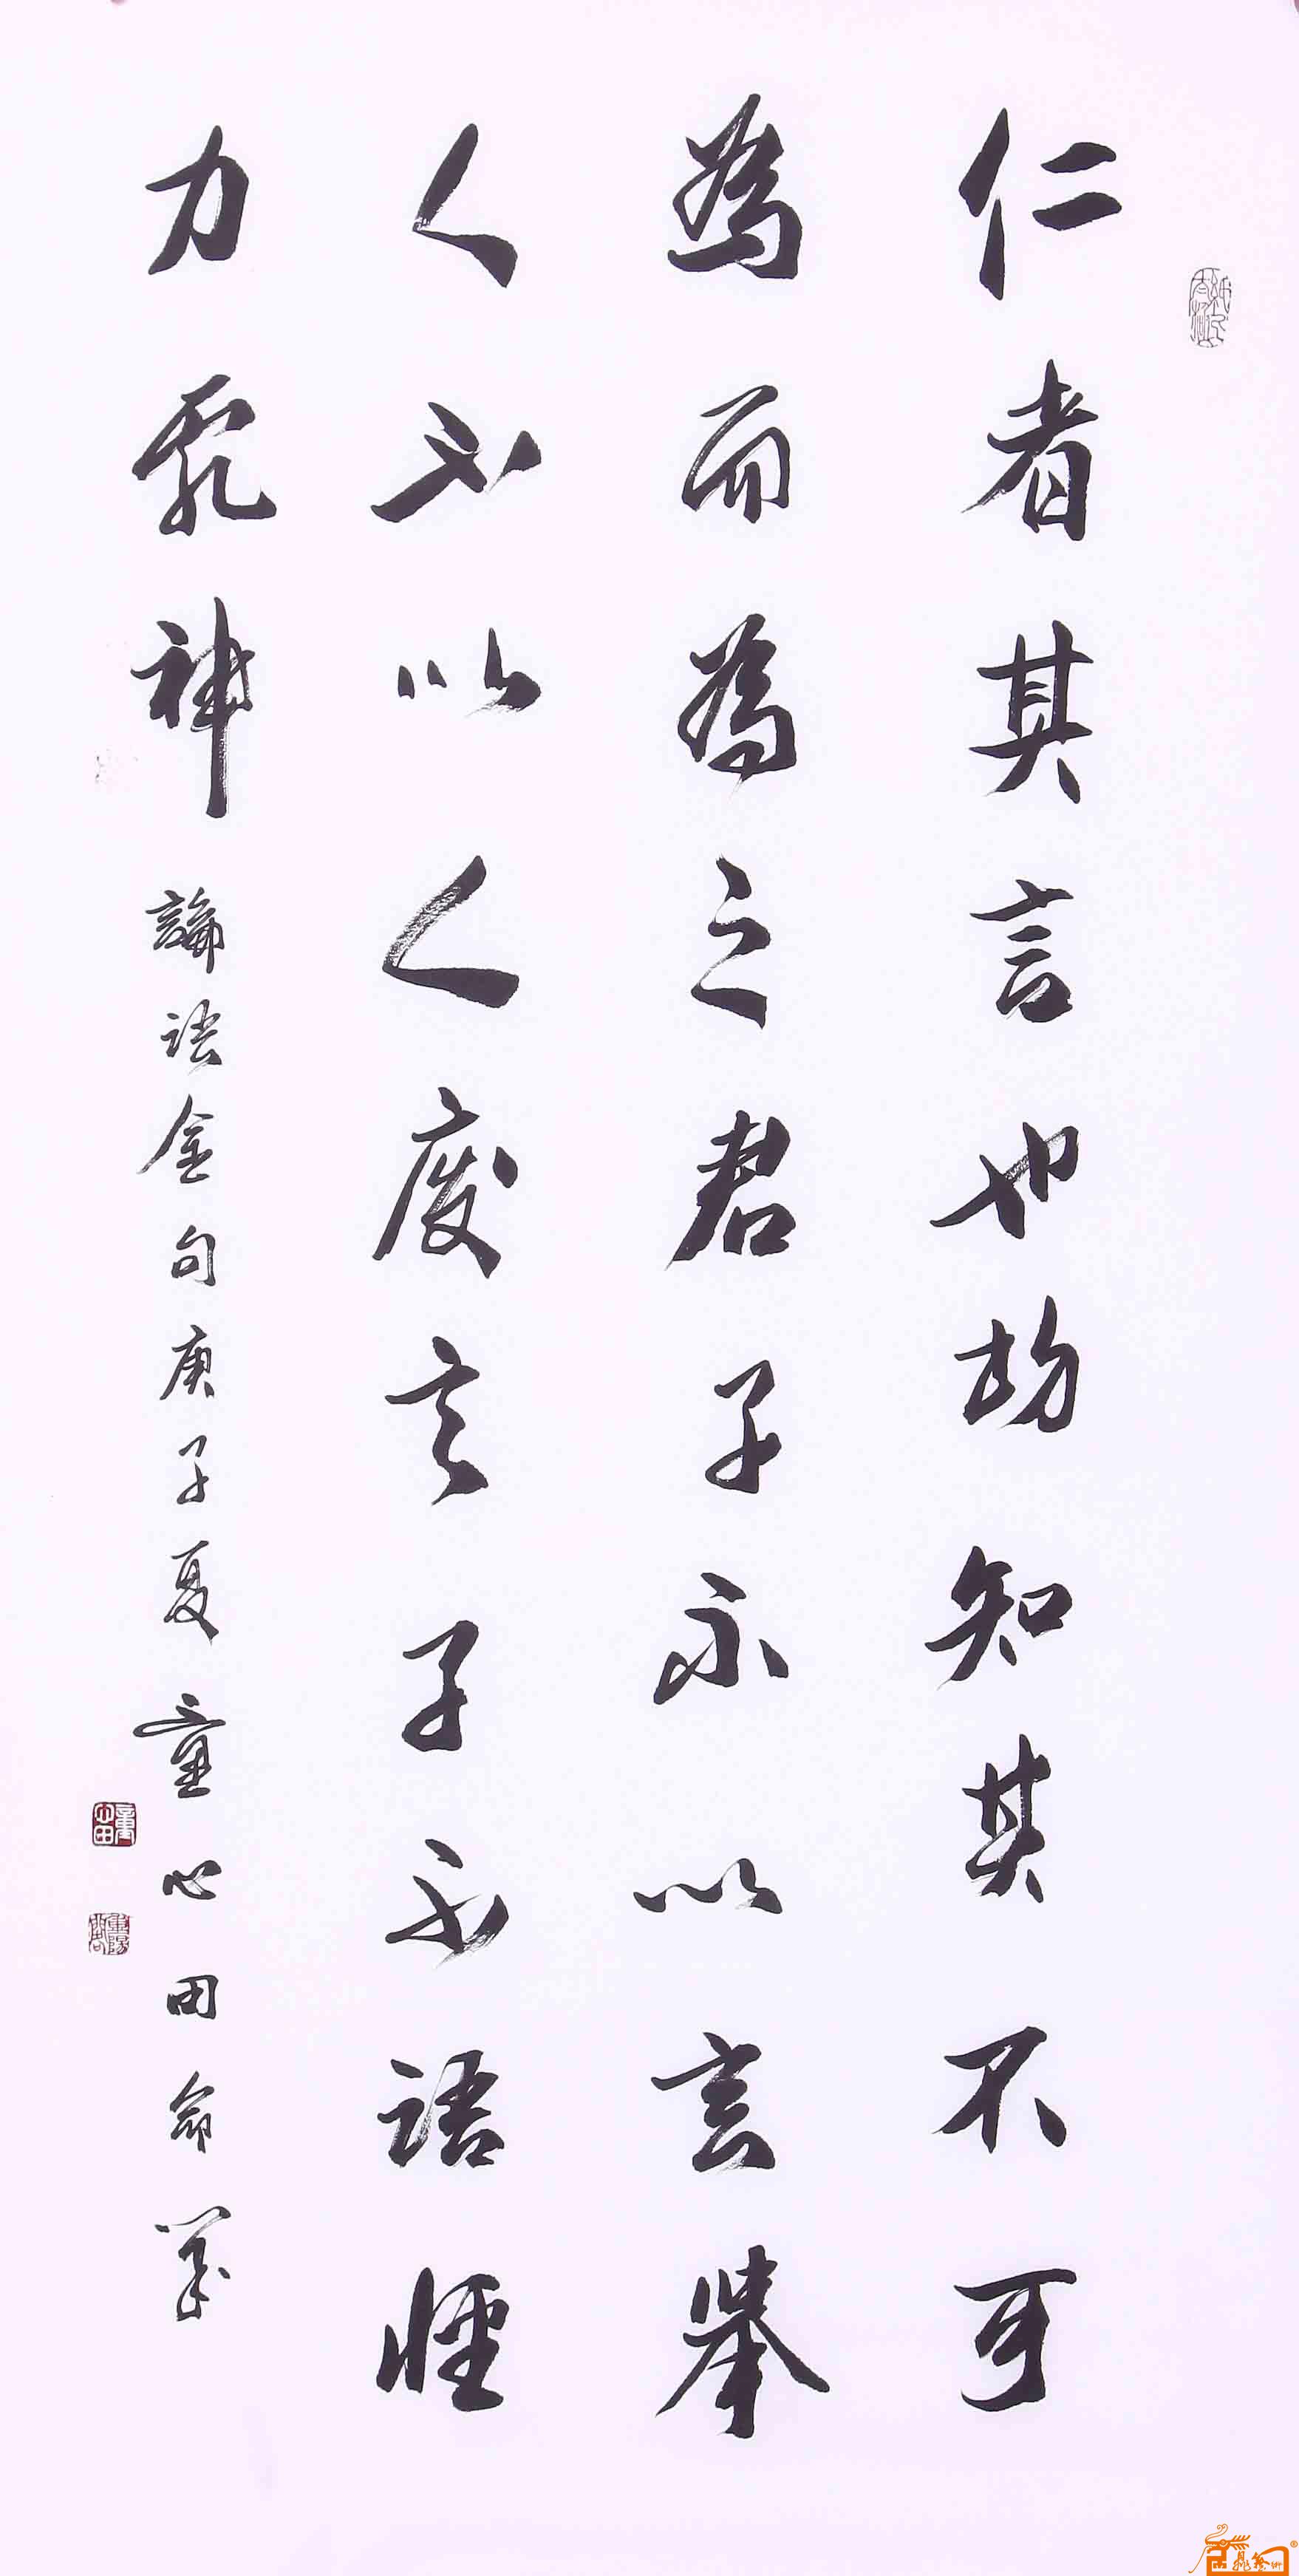 仁者其言也訒知其不可
為而為之君子不以言舉
人不以人廢言子不語怪
力亂神論語金句庚子夏童心田命筆